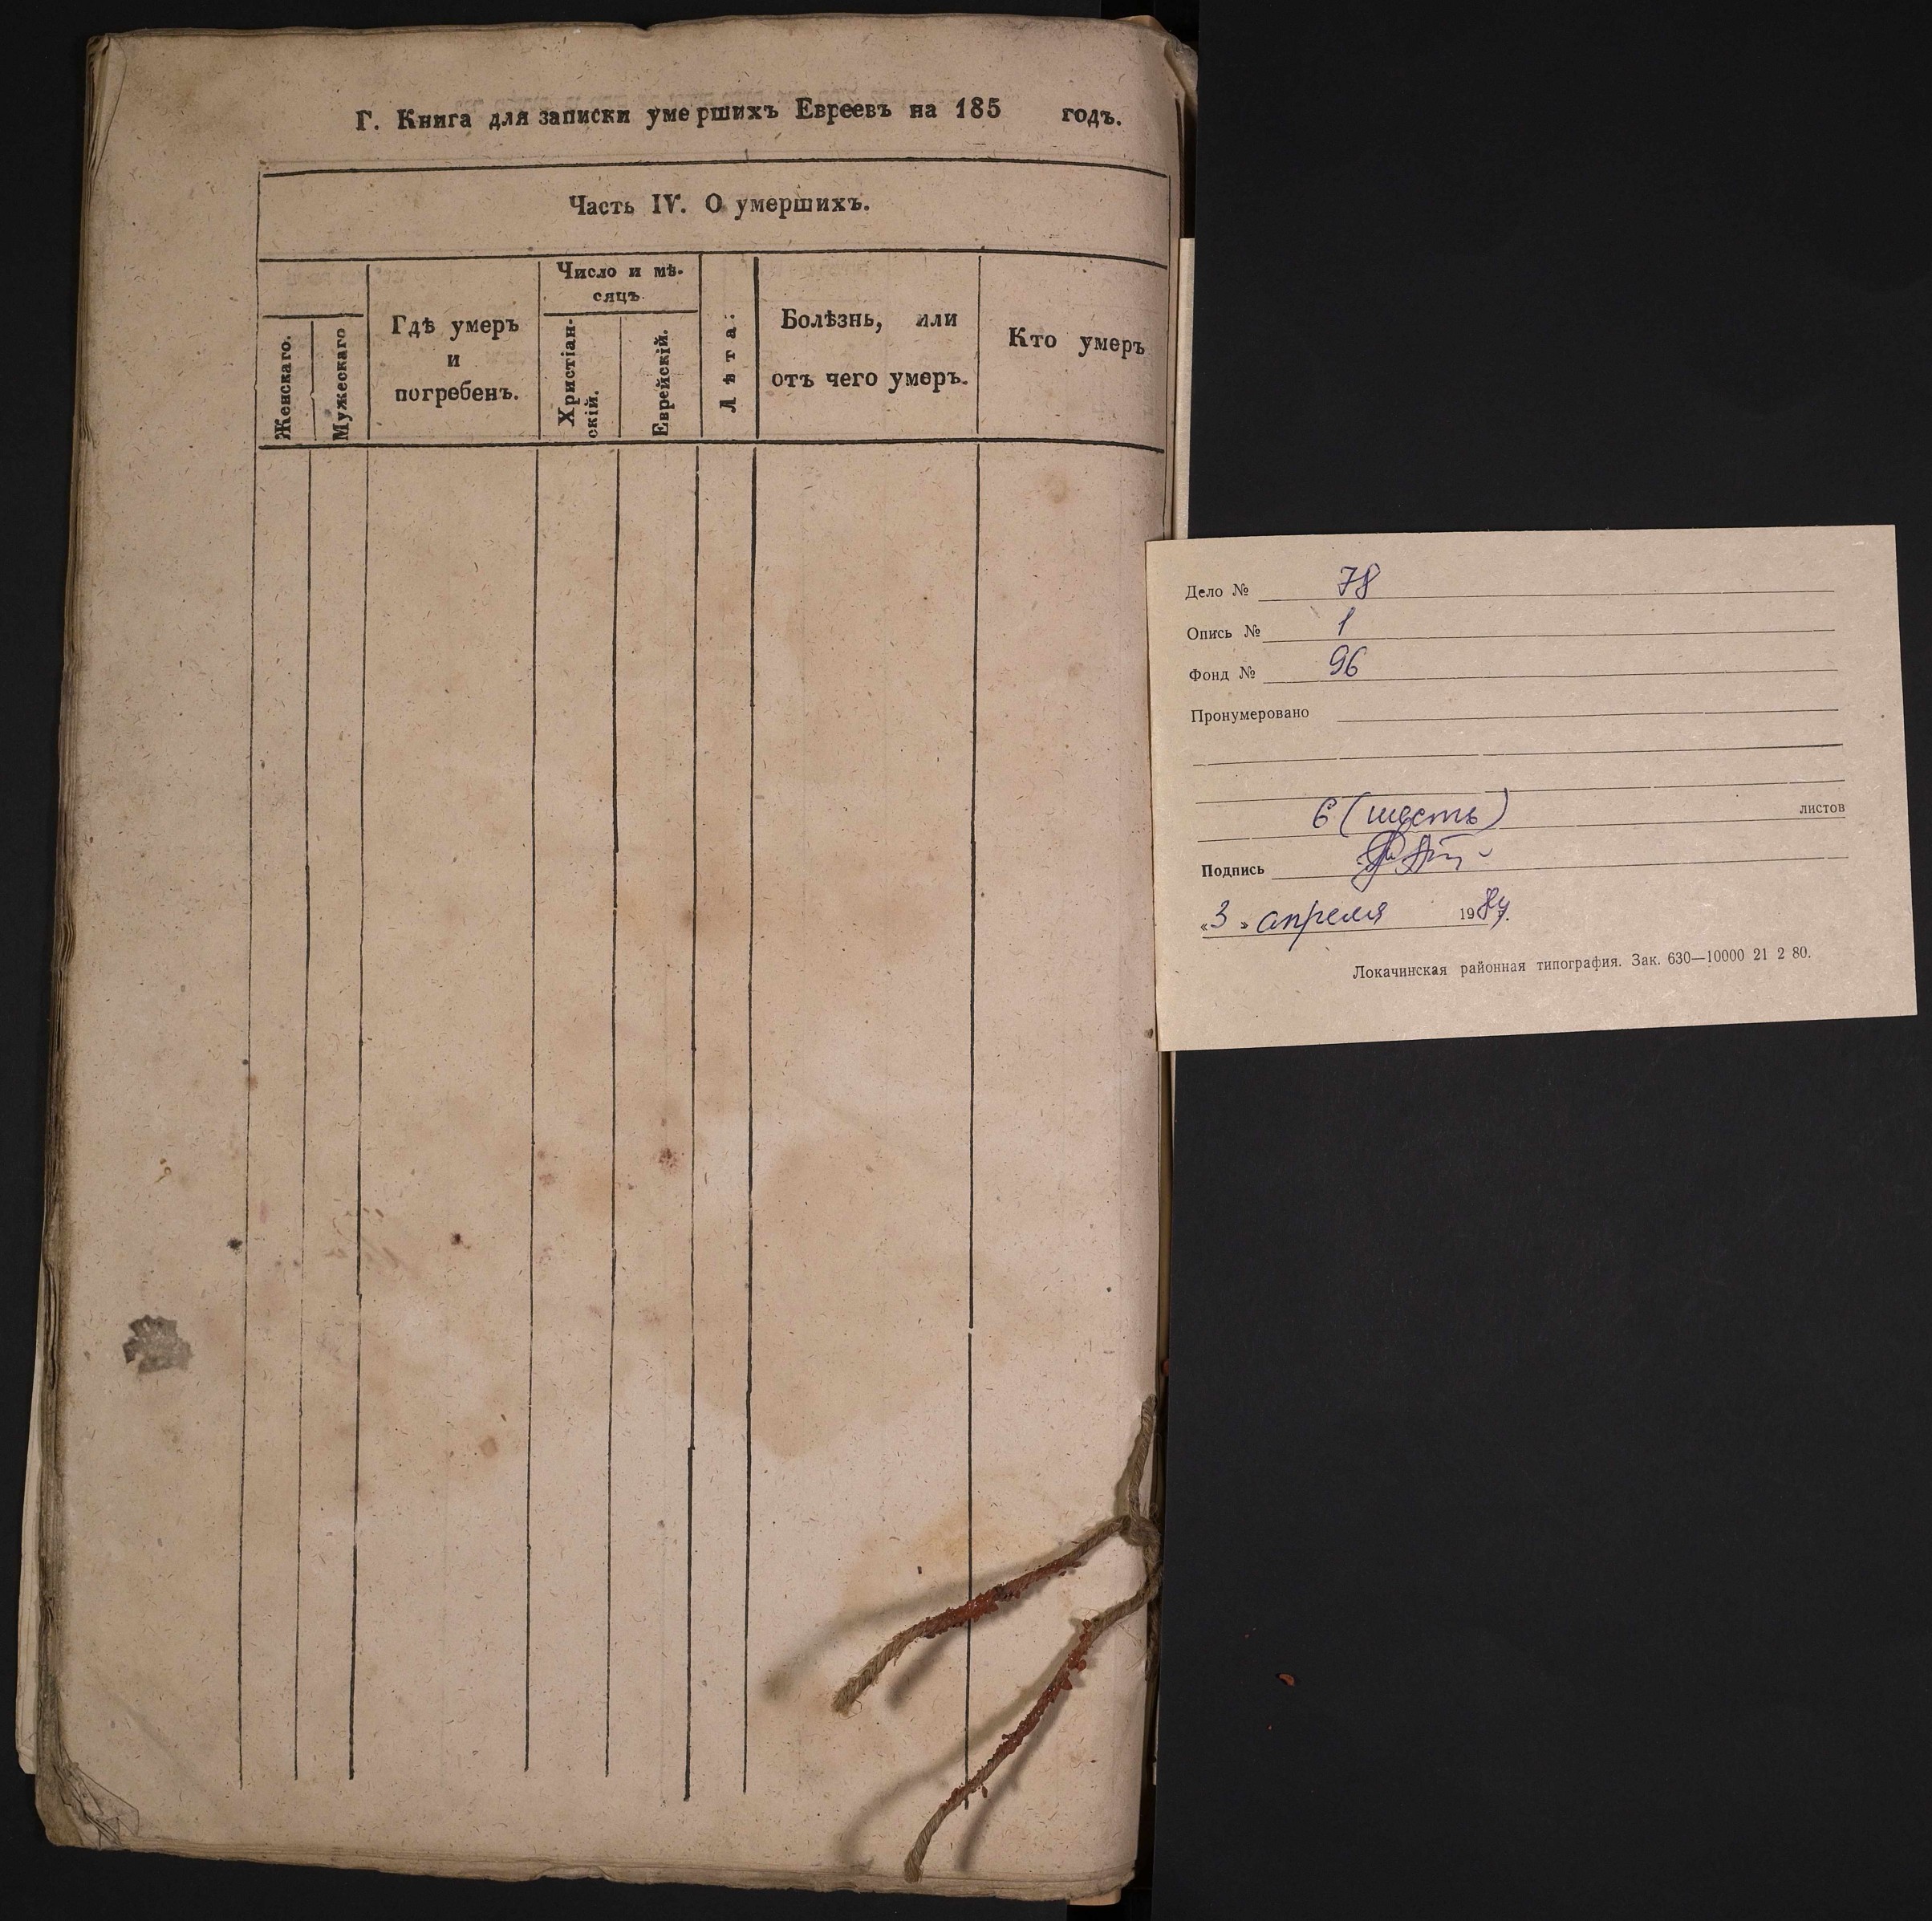 Г. Книга для записки умершихъ Евреевъ на 185 годъ.
Часть IV. О умершихъ.
Женскаго.
Мужескаго
Гдѣ умеръ
и
погребенъ.
Число и мѣ-
сяцъ
Христіан-
скій.
Еврейскій.
Лѣта:
Болѣзнь, или
отъ чего умеръ.
Кто умеръ
Дело № 78
Опись № 1
Фонд № 96
Пронумеровано
6 (шесть) листов
Подпись
«3» апреля 198
Локачинская районная типография. Зак. 630—10000 21 2 80.